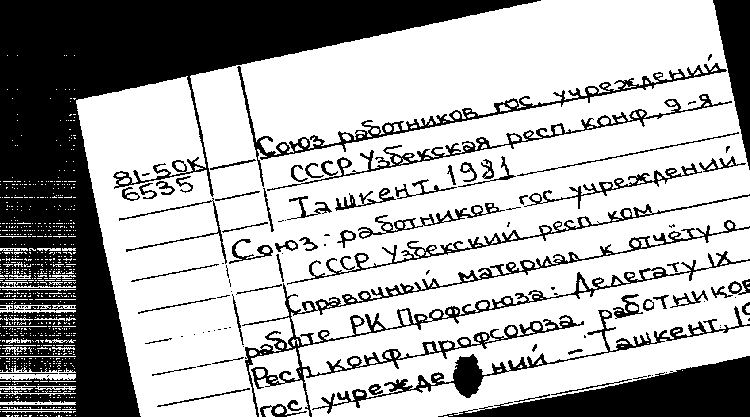 81-50К
6535
Союз работников гос. учреждений
СССР. Узбекская респ. конф., 9-я
Ташкент. 1981
Союз. работников гос учреждений
СССР. Узбекский респ. ком.
Справочный материал к отчёту о
работе РК Профсоюза: Делегату IX
Респ. конф. профсоюза. работников
гос. учрежде ний. - Ташкент, 19